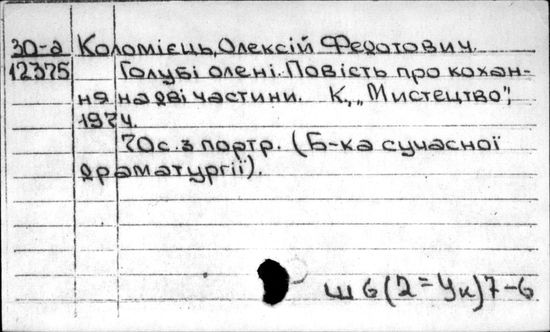 30-а Коломієць, Олексій Федотович.
12375 Голубі олені. Повість про кохан-
ня на дві частини. К., „Мистецтво",
1974.
70с. з портр. (Б-ка сучасної
драматургії).
Ш6(2=Ук)7-6